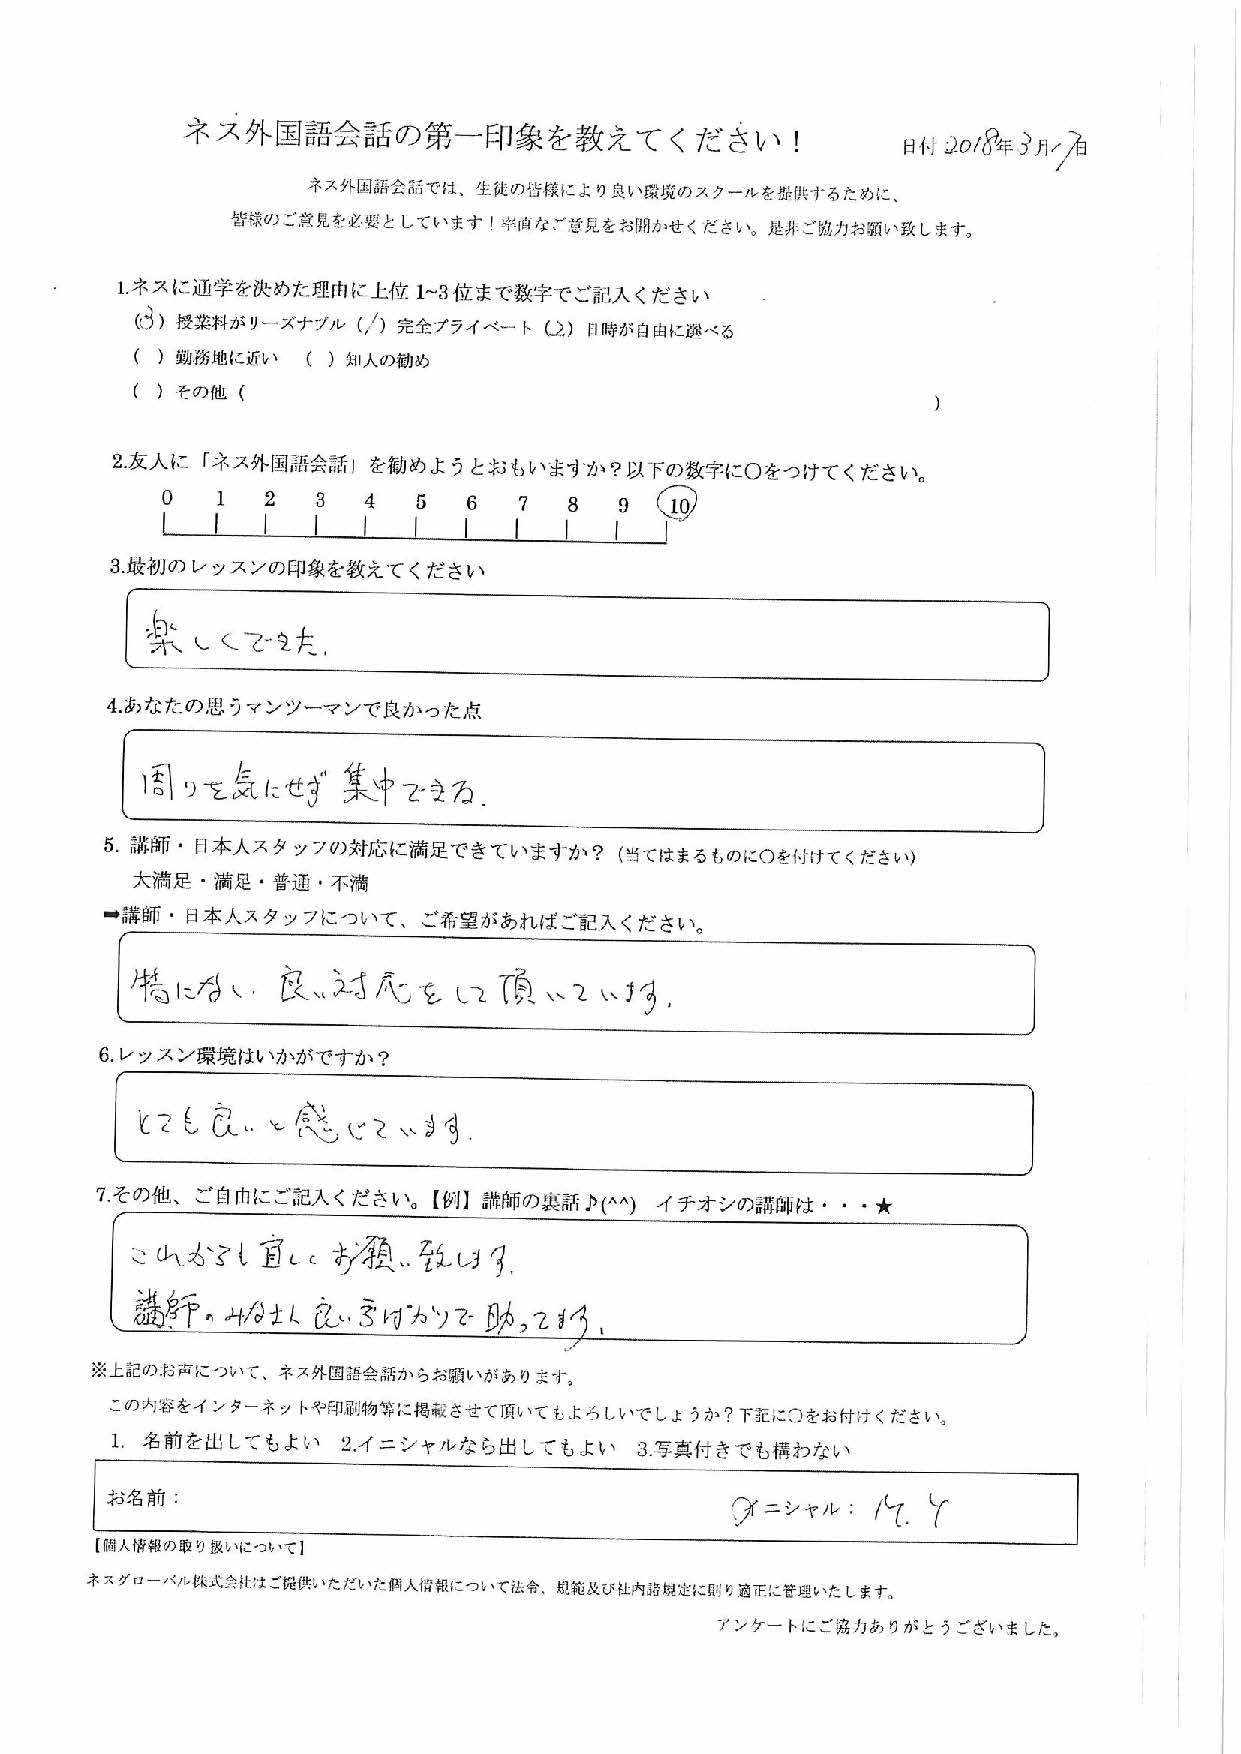 ネス外国語会話の第一印象を教えてください！
日付 2018年3月17日
ネス外国語会話では、生徒の皆様により良い環境のスクールを提供するために、
皆様のご意見を必要としています！率直なご意見をお聞かせください。是非ご協力お願い致します。
1.ネスに通学を決めた理由に上位 1~3 位まで数字でご記入ください
（3）授業料がリーズナブル（1）完全プライベート（2）日時が自由に選べる
（ ）勤務地に近い （ ）知人の勧め
（ ）その他（ ）
2.友人に「ネス外国語会話」を勧めようとおもいますか？以下の数字に〇をつけてください。
0 1 2 3 4 5 6 7 8 9 10
3.最初のレッスンの印象を教えてください
楽しくできた.
4.あなたの思うマンツーマンで良かった点
周りを気にせず集中できる.
5. 講師・日本人スタッフの対応に満足できていますか？（当てはまるものに〇を付けてください）
大満足・満足・普通・不満
➡講師・日本人スタッフについて、ご希望があればご記入ください。
特にない. 良い対応をして頂いています.
6.レッスン環境はいかがですか？
とても良いと感じています.
7.その他、ご自由にご記入ください。【例】講師の裏話♪(^^) イチオシの講師は・・・★
これからも宜しくお願い致します.
講師のみなさん良い方ばかりで助ってます.
※上記のお声について、ネス外国語会話からお願いがあります。
この内容をインターネットや印刷物等に掲載させて頂いてもよろしいでしょうか？下記に〇をお付けください。
1. 名前を出してもよい 2.イニシャルなら出してもよい 3.写真付きでも構わない
お名前： イニシャル： M. Y
【個人情報の取り扱いについて】
ネスグローバル株式会社はご提供いただいた個人情報について法令、規範及び社内諸規定に則り適正に管理いたします。
アンケートにご協力ありがとうございました。